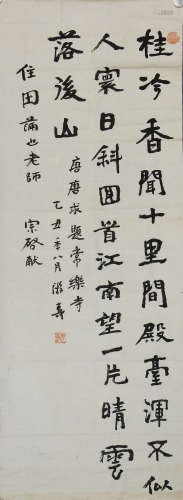 桂冷香聞十里間殿臺渾不似
人寰日斜回首江南望一片晴雲
落後山
唐唐求題常樂寺
乙丑年八月
住田蒲也老師
宗啟獻